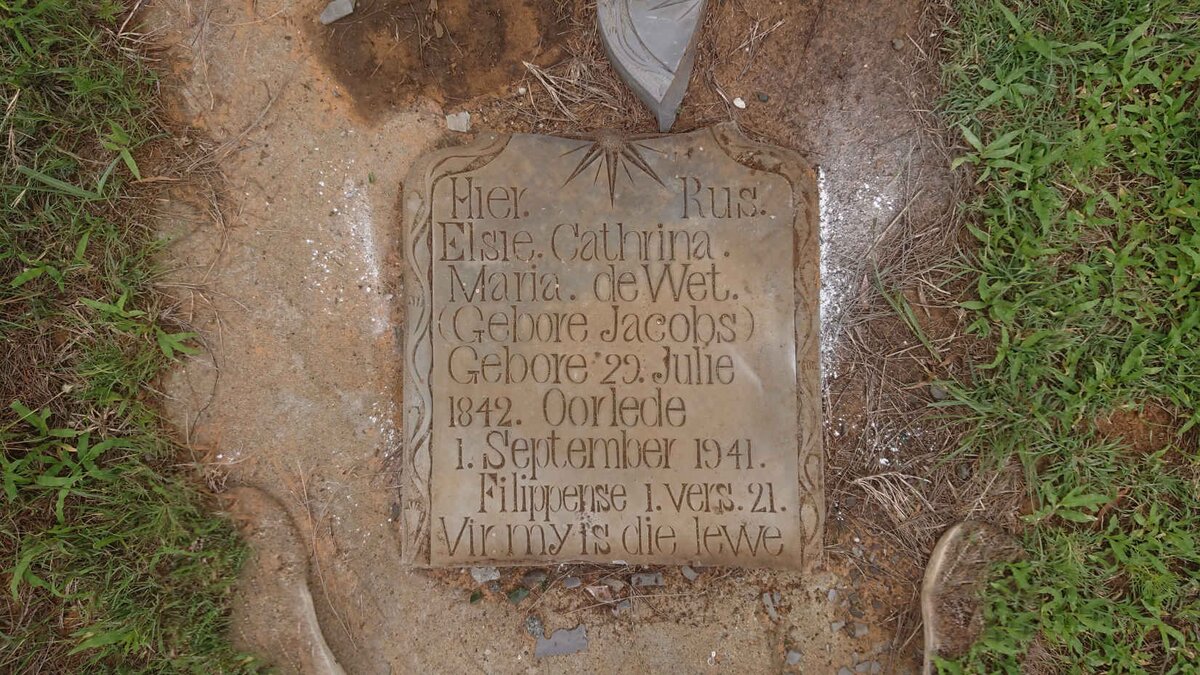 Hier. Rus.
Elsie. Cathrina.
Maria. de Wet.
(Gebore Jacobs)
Gebore 29. Julie
1842. Oorlede
1. September 1941.
Filippense 1. vers. 21.
Vir my is die lewe